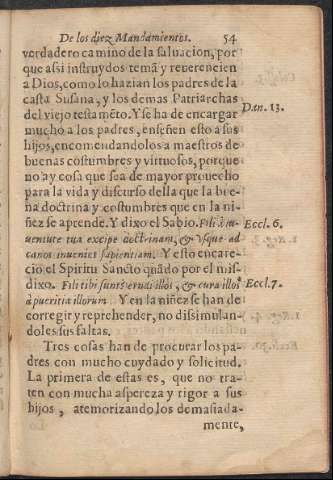 De los diez Mandamientos. 54
verdadero camino de la saluacion, por
que assi instruydos temã y reuerencien
a Dios, como lo hazian los padres de la
casta Susana, y los demas Patriarchas
del viejo testamẽto. Y se ha de encargar Dan. 13.
mucho a los padres, enseñen esto a sus
hijos, encomendandolos a maestros de
buenas costumbres y virtuosos, porque
no ay cosa que sea de mayor prouecho
para la vida y discurso della que la bue
na doctrina y costumbres que en la ni-
ñez se aprende. Y dixo el Sabio. Fili à iu- Eccl. 6.
uentute tua excipe doctrinam, & vsque ad
canos inuenies sapientiam. Y esto encare-
cio el Spiritu Sancto quãdo por el mis-
dixo. Fili tibi sunt? erudi illos, & cura illos Eccl. 7.
à pueritia illorum. Y en la niñez se han de
corregir y reprehender, no dissimulan-
doles sus faltas.
Tres cosas han de procurar los pa-
dres con mucho cuydado y solicitud.
La primera de estas es, que no tra-
ten con mucha aspereza y rigor a sus
hijos, atemorizando los demasiada-
mente,